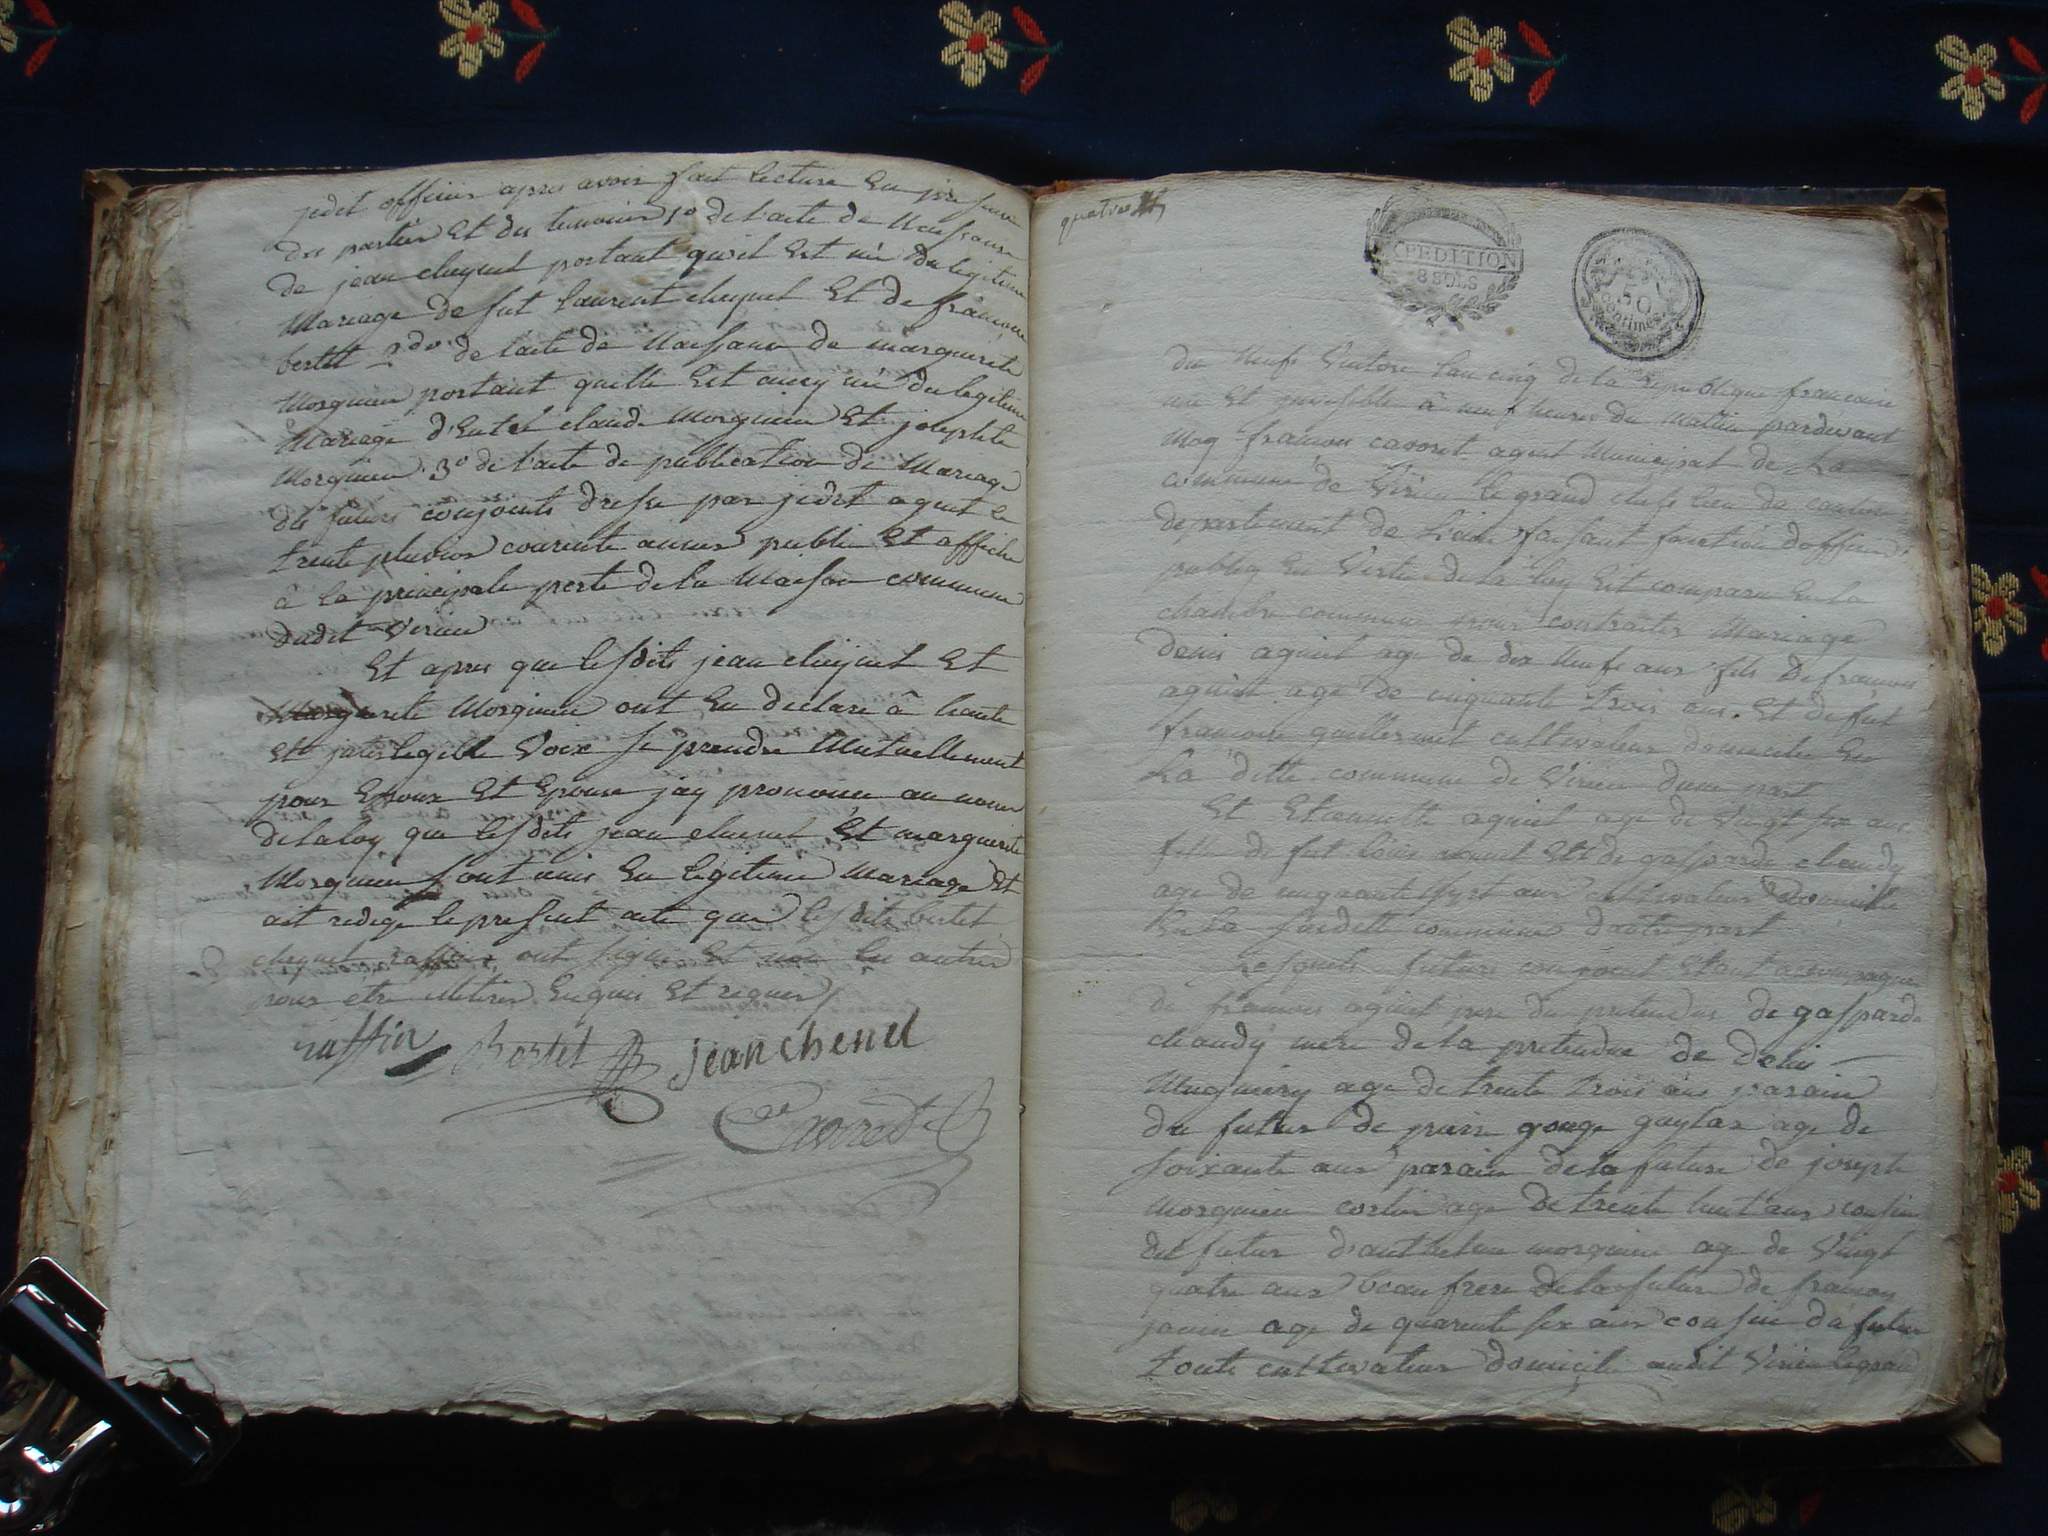 jedit officier apres avoir fait lecture En presence
des parties Et des temoins 1o de l'acte de Naissance
de jean chaynet portant qu'il Est né du legitime
Mariage de fut Laurent chaynet Et de francoise
bertet 2do de lacte de Naissance de marguerite
Morgnieu portant quelle Est aussy né du legitime
Mariage d'Entel claude Morgnieu Et josephte
Morgnieu 3o de l'acte de publication de Mariage
du futurs conjoints dresse par jedit agent le
trente pluviose courante année publie Et affiche
à la principale porte de la Maison commune
dudit Virieu
Et apres que lesdits jean chaynet Et
Marguerite Morgnieu ont Eu declare â haute
Et Voix se prendre Mutuellement
pour Epoux Et Epouse jay prononcé au nom
de la loy que lesdits jean chaynet Et marguerite
Morgnieu sont unis En legitime Mariage Et
ait redigé le present acte que lesdits bertet
chaynet raffin ont signé Et non les autres
pour etre illitirés Enquis Et requis
raffin Bertet jean chenel
Cavoret
quatre
EXPEDITION
8 SOLS
50
centimes
du Neufs Ventose l'an cinq de la Republique francoise
une Et indivisible à neuf heures du Mattin pardevant
Moy francois cavoret agent Municipal de La
commune de Virieu le grand chefs lieu du canton
departement de Lain faisant fonction dofficier
public En Vertu de la loy Est comparu En la
chambre commune pour contracter Mariage
Denis aguiet age de dix Neufs ans fils De francois
aguiet agé de cinquante trois ans. Et de fut
francoise guillermet cultivateur domicilié En
La ditte commune de Virieu d'une part
Et Etiennette aguiet age de Vingt six ans
fille de fut Et de gasparde chaudy
age de cinquante sept ans cultivateur domicilie
En La susdette commune d'autre part
Lesquels futurs conjoint Etant accompagné
de francois aguiet pere du pretendus de gasparde
chaudy mere de la pretendue de Denis
Mugniery age de trente trois ans parain
du futur de pierre gouge guylar age de
soixante ans parain de la future de joseph
Morgnieu cortin age de trente huit ans cousin
du futur d'anthelme morgnieu agé de Vingt
quatre ans beau frere de la future de francois
janin age de quarente six ans cousin du futur
touts cultivateur domicilié audit Virieu legrand